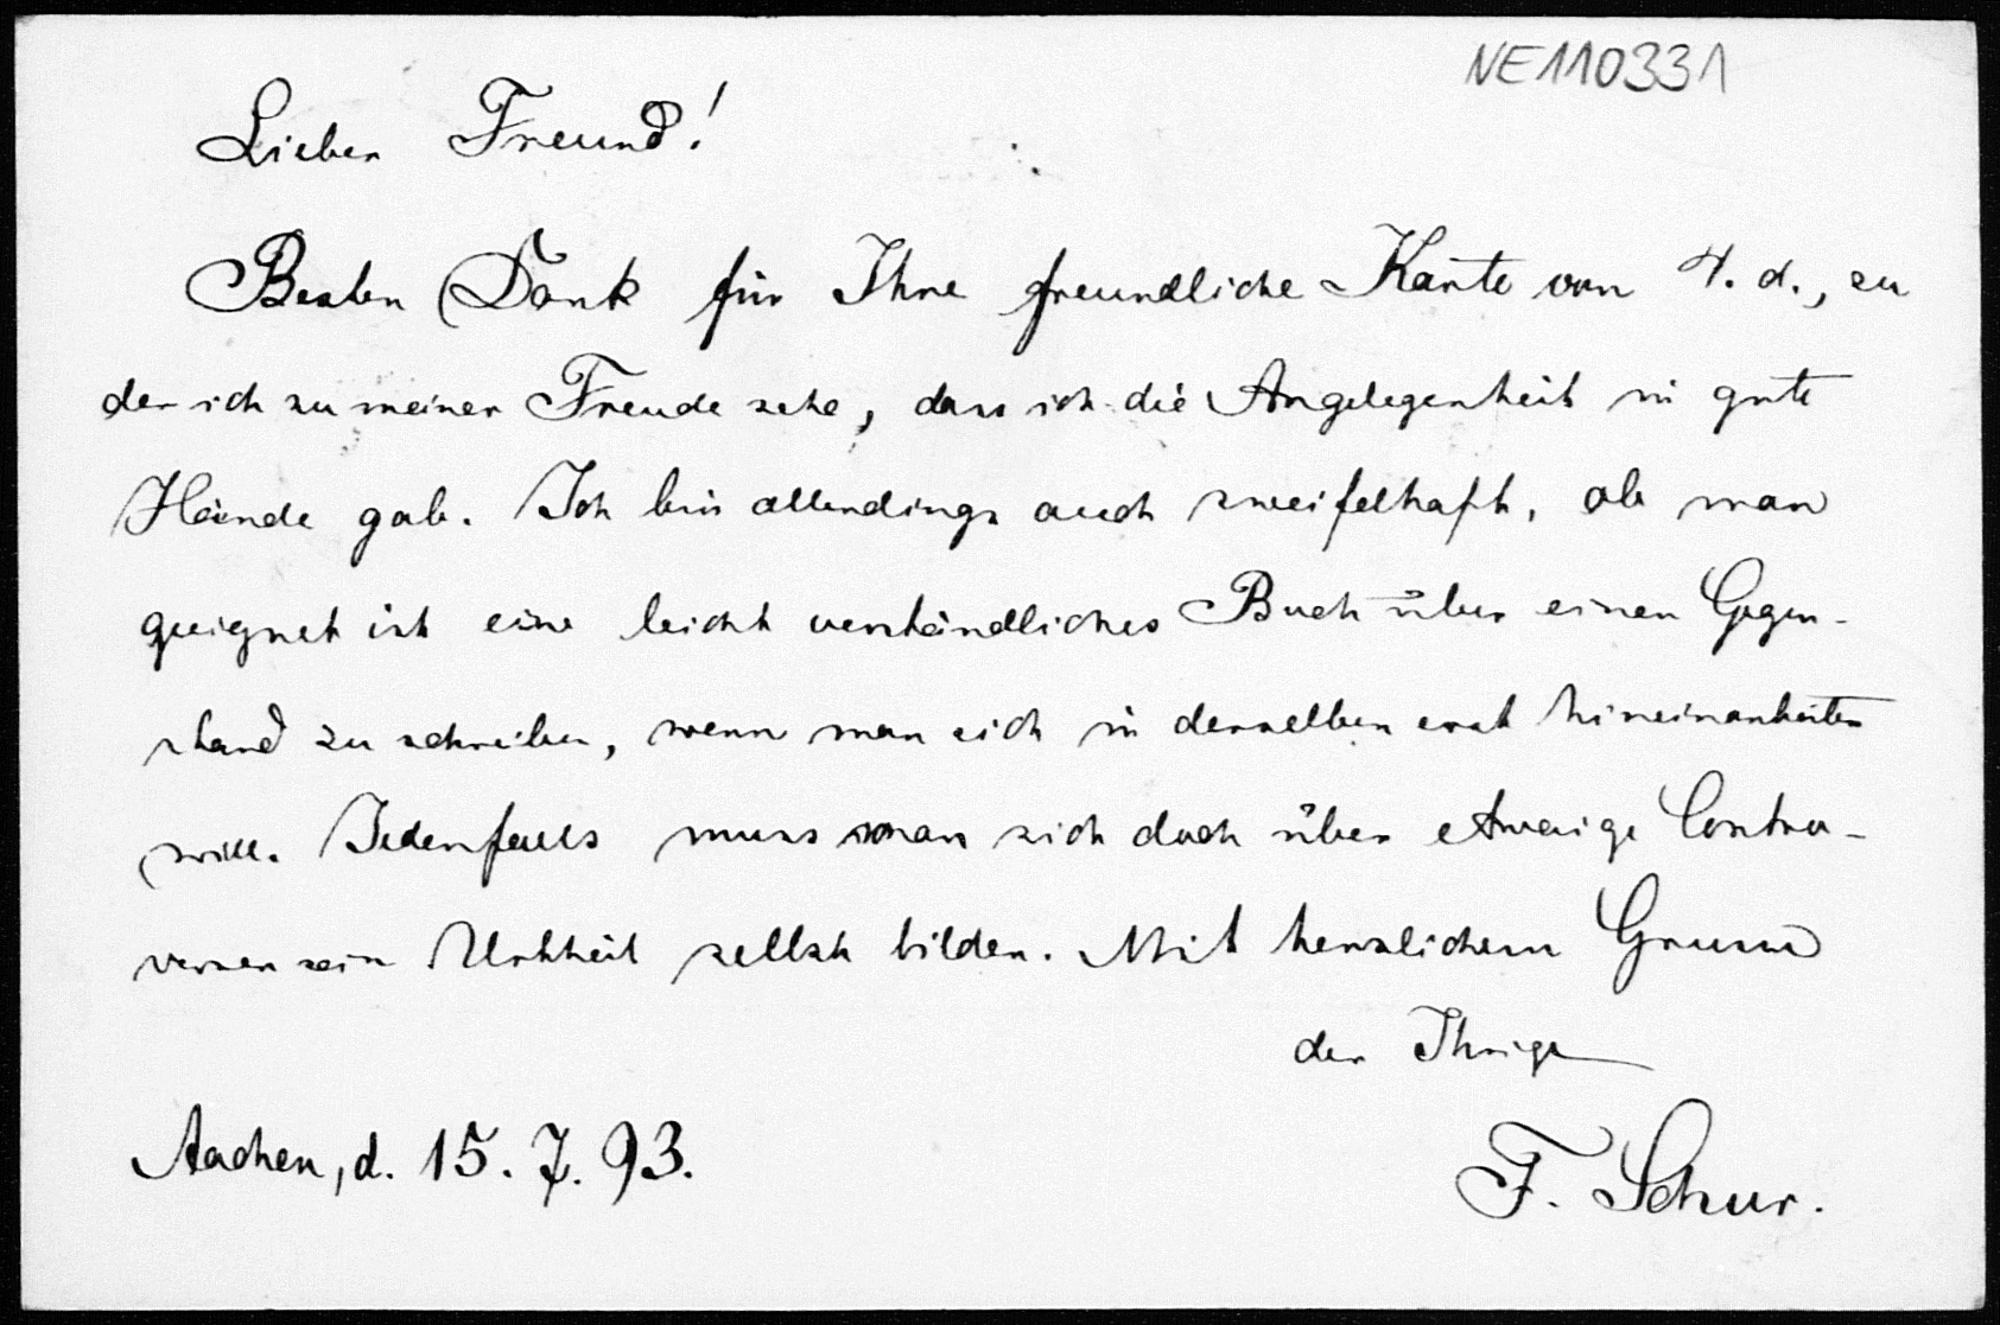 NE110331
Lieber Freund!
Besten Dank für Ihre freundliche Karte vom 4. d., zu
der ich zu meiner Freude sehe, dass ich die Angelegenheit in gute
Hände gab. Ich bin allerdings auch zweifelhaft, ob man
geeignet ist eine leicht verständliches Buch über einen Gegen-
stand zu schreiben, wenn man sich in denselben erst hineinarbeiten
will. Jedenfalls muss man sich doch über etwaige Contro-
versen sein Urtheil selbst bilden. Mit herzlichem Gruss
der Ihrige
Aachen, d. 15. 7. 93.
F. Schur.